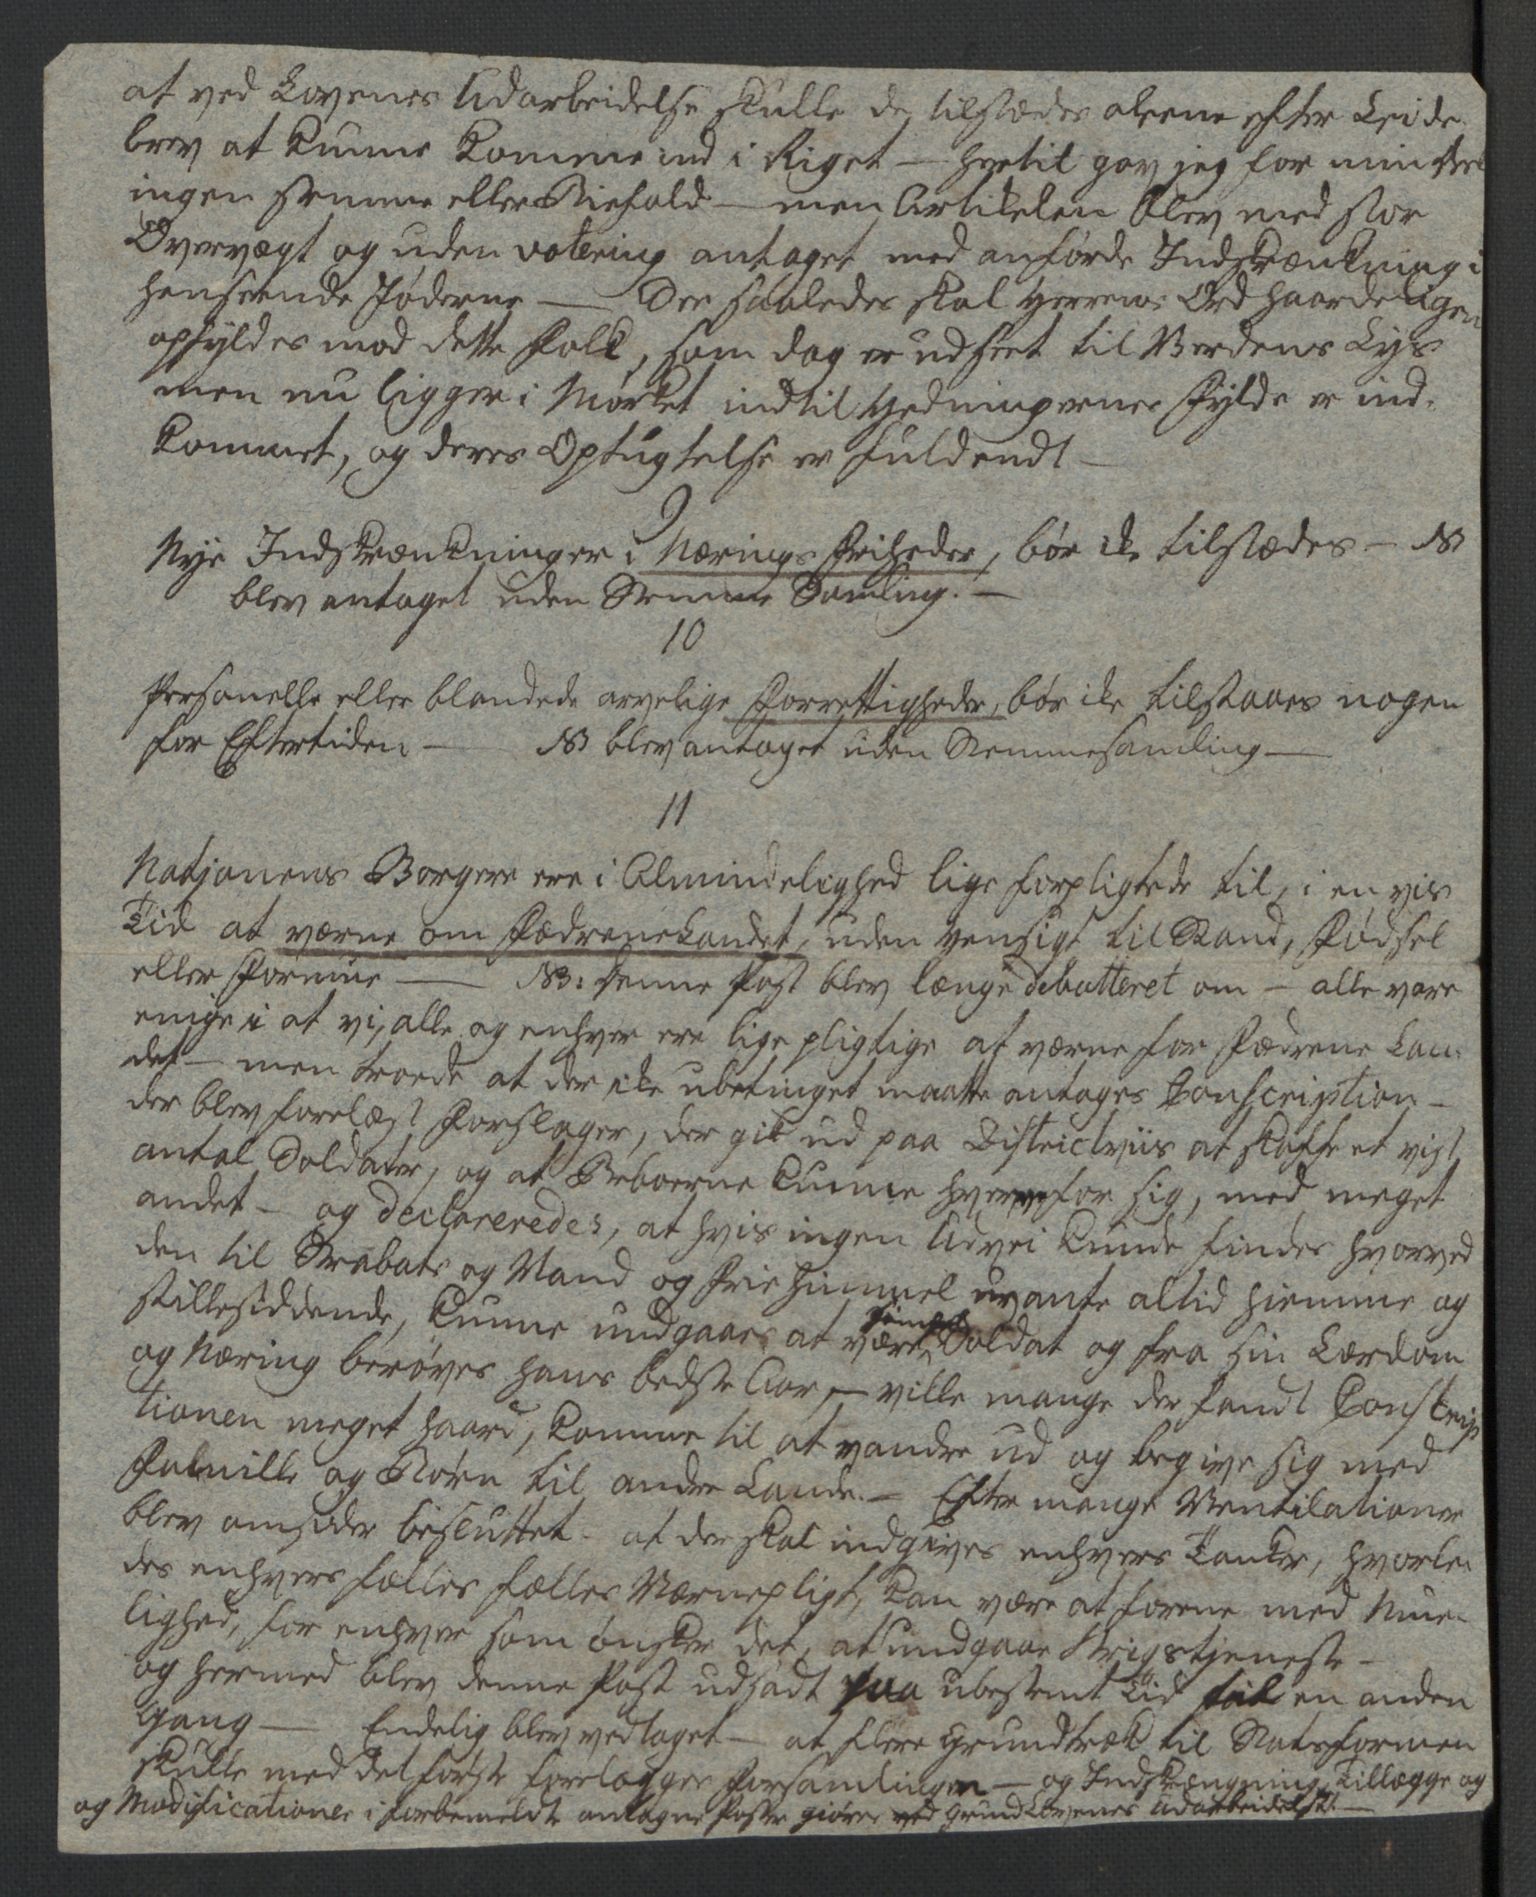 at ved Lovenes Udarbeidelse skulle de tilstædes aleene efter Leide
brev at kunne komme ind i Riget — hvortil gav jeg for min Deel
ingen stemme eller Biefald — men Artikelen blev med stor
Overvægt og uden votering antaget med anførde Indskrænkning i
henseende Jøderne — Der saaledes skal Herrens Ord haardeligen
opfyldes mod dette Folk, som dog er udseet til Verdens Lys
men nu ligger i Mørket indtil Hedningernes Fylde er ind-
kommet, og deres Optugtelse er fuldendt —
9
Nye Indskrænkninger i Nærings Friheder, bør ike tilstædes — NB
blev antaget uden Stemme Samling. —
10
Personelle eller blandede arvelige Forrettigheder, bør ike tilstaaes nogen
for Eftertiden — NB blev antaget uden Stemmesamling —
11
Natjonens Borgere ere i Almindelighed lige forpligtede til, i en vis
Tid at værne om Fædrenelandet, uden Hensigt til Stand, Fødsel
eller Formue — NB: denne Post blev længe debatteret om — alle vare
enige i at vi, alle og enhver ere lige pligtige at værne for Fædrene Lan-
det — men troede at der ike ubetinget maatte antages Conscription —
der blev forelæst Forslager, der gik ud paa Districtviis at skaffe et vist
antal Soldater, og at Beboerne kunne hverve for sig, med meget
andet — og declareredes, at hvis ingen Udvei kunde findes hvorved
den til Strabats og Vand og frie Himmel uvante altid hiemme og
stillesiddende, kunne undgaaes at være simpel Soldat og fra sin Lærdom
og Næring berøves hans bedste Aar, — ville mange der fandt Conscrip
tionen meget haard, komme til at vandre ud og begive sig med
Familie og Børn til andre Lande. — Efter mange Ventilationer
blev omsider besluttet — at der skal indgives enhvers Tanker, hvorle-
des enhvers fælles fælles Værnepligt, kan være at forene med Mue-
lighed, for enhver som ønsker det, at undgaae Krigstjeneste —
og hermed blev denne Post udsadt paa ubestemt Tid til en anden
Gang — Endelig blev vedtaget — at flere Grundtræk til Statsformen
skulle med det første forelægges Forsamlingen — og Indskrængning, Tillægge og
og Modificationer i forbemeldte antagne Poster giøres ved GrundLovenes Udarbeidelse. —